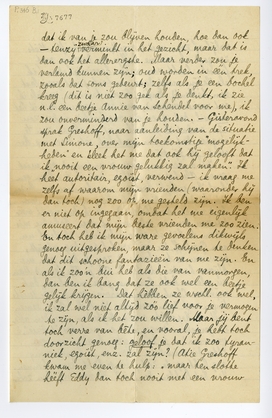 dat ik van je zou blijven houden, hoe dan ook
– tenzij zwaar verminkt in het gezicht, maar dat is
dan ook het allerergste. Maar verder zou je
verlamd kunnen zijn, oud worden in een trek,
zooals dat soms gebeurt; zelfs als je een bochel
kreeg (dit is niet zoo gek als je denkt, ik zie
n.l. een beetje Annie van Schendel voor me), ik
zou onverminderd van je houden. – Gisteravond
sprak Greshoff, naar aanleiding van de situatie
met Simone, over mijn toekomstige mogelijk-
heden en bleek het me dat ook hij gelooft dat
ik „nooit een vrouw gelukkig zal maken". Ik
heet autoritair, egoïst, verwend – ik vraag me
zelf af waarom mijn vrienden (waaronder hij
dan toch) nog zoo op me gesteld zijn. Ik ben
er niet op ingegaan, omdat het me eigenlijk
amuseert dat mijn beste vrienden me zoo zien.
En toch heb ik mijn ware gevoelens dikwijls
genoeg uitgesproken, maar ze schijnen te denken
dat dit schoone fantazieën van me zijn. En
als ik zoo'n bui heb als die van vanmorgen,
dan ben ik bang dat ze ook wel een beetje
gelijk krijgen. Dat hebben ze avant, ook wel,
ik zal wel niet altijd zoo lief voor je vermogen
te zijn, als ik het zou willen. Maar jij bent
toch verre van bête, en vooral, je hebt toch
doorzicht genoeg: geloof je dat ik zoo tyran-
niek, egoïst, enz. zal zijn? (Atie Greshoff
kwam me even te hulp: .. maar ten slotte
heeft Eddy dan toch nooit met een vrouw